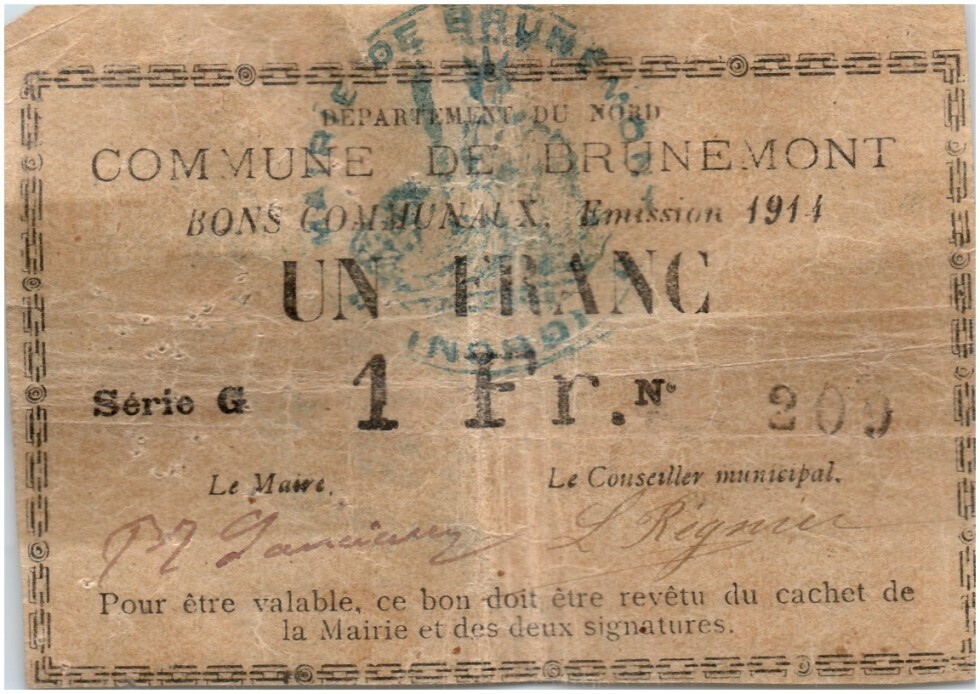 MAIRIE DE BRUNEMONT
DÉPARTEMENT DU NORD
COMMUNE DE BRUNÉMONT
BONS COMMUNAUX. Emission 1914
UN FRANC
(NORD)
Série G 1 Fr. N° 209
Le Maire, Le Conseiller municipal,
L Régnier
Pour être valable, ce bon doit être revêtu du cachet de
la Mairie et des deux signatures.